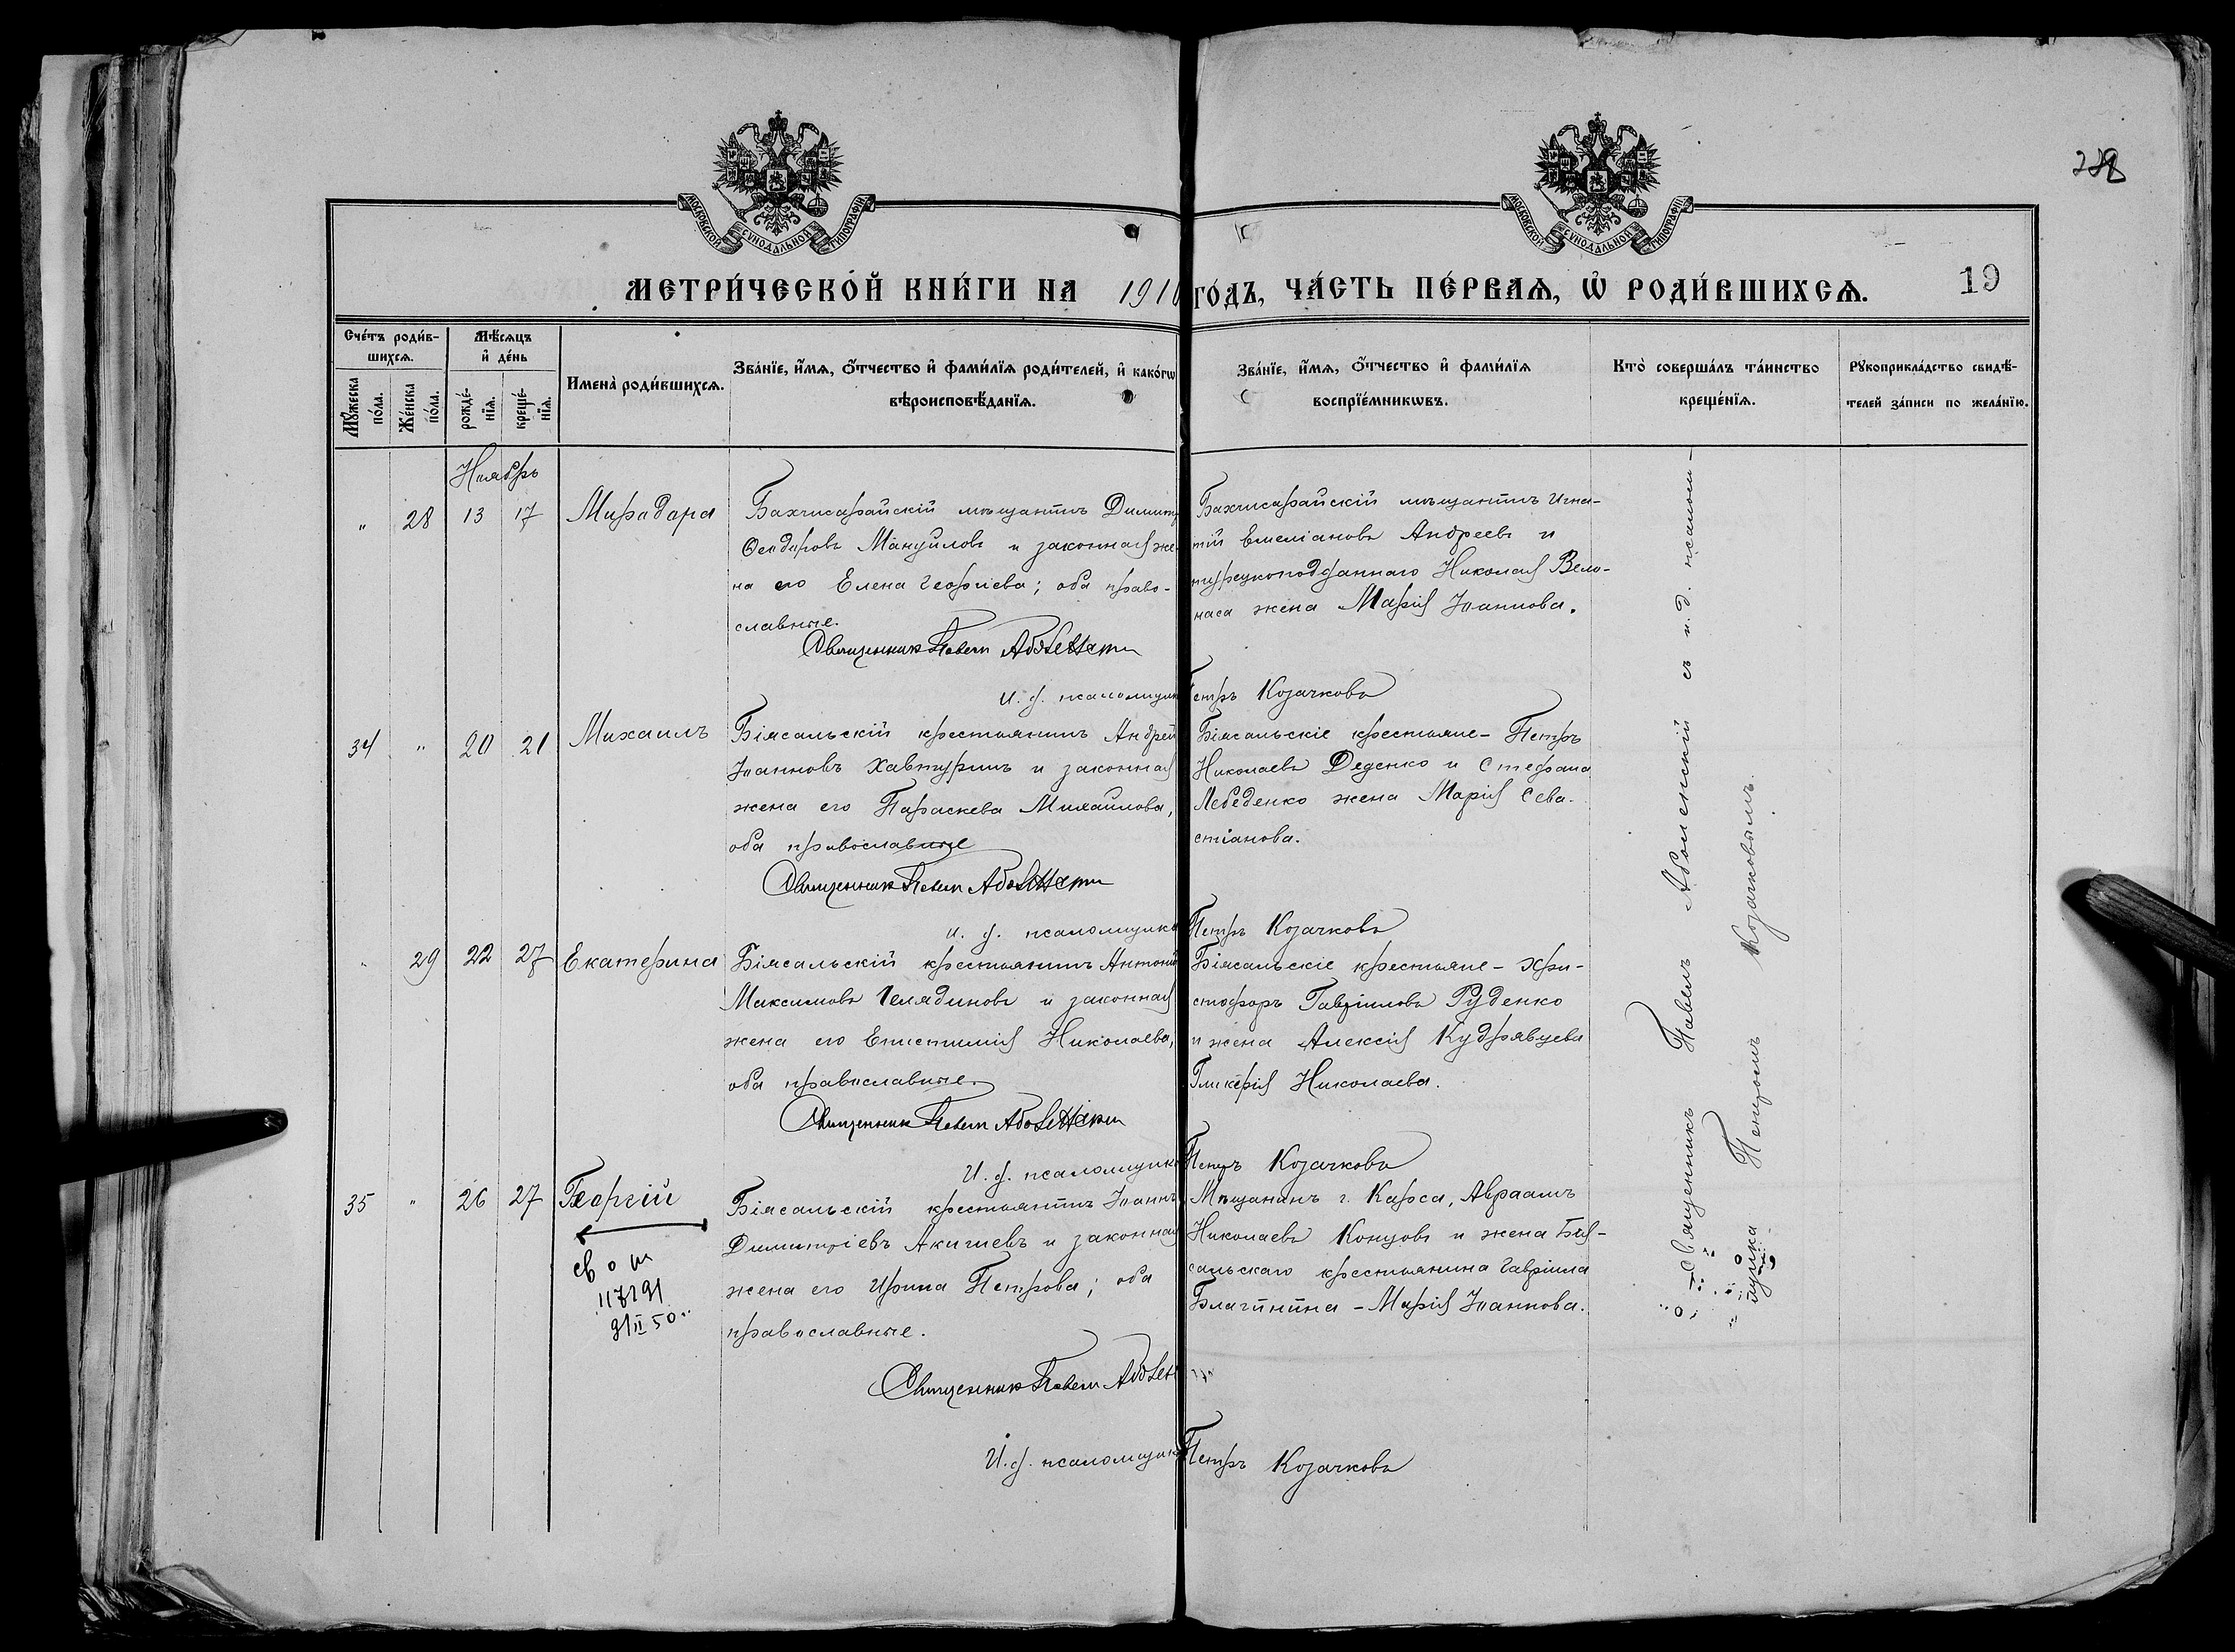 МОСКОВСКОЙ СУНОДАЛЬНОЙ ТИПОГРАФІИ
МОСКОВСКОЙ СУНОДАЛЬНОЙ ТИПОГРАФІИ
19
МЕТРИ́ЧЕСКОЙ КНИ́ГИ НА 1910 ГО́ДЪ, ЧА́СТЬ ПЕ́РВАѦ, Ѡ РОДИ́ВШИХСѦ.
Сче́тъ роди́в-
шихсѧ.
Мꙋ́жеска по́ла.
Же́нска по́ла.
Мѣ́сѧцъ и де́нь
рожде́-
нїѧ.
креще́-
нїѧ.
Имена̀ роди́вшихсѧ.
Зва́нїе, и́мѧ, ѻ҆́тчество и фами́лїѧ роди́телей, и како́гѡ
вѣроисповѣ́данїѧ.
Зва́нїе, и́мѧ, ѻ҆́тчество и фами́лїѧ
воспрїе́мникѡвъ.
Кто̀ соверша́лъ та́инство
креще́нїѧ.
Рꙋкоприкла́дство свидѣ́-
телей за́писи по жела́нїю.
Ноябрь
" 28 13 17 Мирадара
Бахчисарайскій мѣщанинъ Димитр
Ѳеодоровъ Мангуловъ и законная же-
на его Елена Георгіева; оба право-
славные.
Священникъ Павелъ
Бахчисарайскій мѣщанинъ Игна-
тій Емеліановъ Андреевъ и
турецкоподданнаго Николая Вело-
наса жена Марія Іоаннова.
И. д. псаломщика Петръ Козачковъ
34 " 20 21 Михаилъ
Біясальскій крестьянинъ Андрей
Іоанновъ Хавтуринъ и законная
жена его Параскева Михаилова,
оба православные
Священникъ Павелъ
Біясальскіе крестьяне - Петръ
Николаевъ Деденко и Стефана
Лебеденко жена Марія Сева-
стіанова.
и. д. псаломщика Петръ Козачковъ
" 29 22 27 Екатерина
Біясальскій крестьянинъ Антоній
Максимовъ Челядиновъ и законная
жена его Епистимія Николаева,
оба православные.
Священникъ Павелъ
Біясальскіе крестьяне - Хри-
стофоръ Гавріиловъ Руденко
и жена Алексія Кудрявцева
Гликерія Николаева.
И. д. псаломщика Петръ Козачковъ
35 " 26 27 Георгій
Біясальскій крестьянинъ Іоаннъ
Димитріевъ Акишевъ и законная
жена его Ирина Петрова; оба
православные.
Священникъ Павелъ
Мѣщанинъ г. Карса, Авраамъ
Николаевъ Концовъ и жена Бія-
сальскаго крестьянина Гавріила
- Марія Іоаннова.
И. д. псаломщика Петръ Козачковъ
Священникъ Павелъ Аболенскій съ и. д. псалом-
щика Петромъ Козачковымъ.